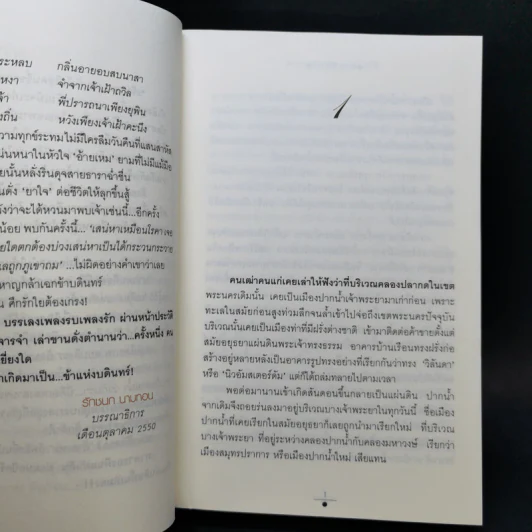 ระหลบ กลิ่นอายอบสบนาสา
หงา จำจากเจ้าเฝ้าถวิล
จ้า พี่ปรารถนาเพียงยุพิน
งถิ่น หวังเพียงเจ้าเฝ้าคะนึง
วามทุกข์ระทมไม่มีใครลืมวันคืนที่แสนสาหัส
น่นหนาในหัวใจ 'อ้ายเหม' ยามที่ไม่มีแม้มือ
ยนั้นหลั่งรินดุจสายธาราฉ่ำชื่น
นดั่ง 'ยาใจ' ต่อชีวิตให้ลุกขึ้นสู้
งว่าจะได้หวนมาพบเจ้าเช่นนี้...อีกครั้ง
น้อย พบกันครั้งนี้... 'เสน่หาเหมือนโรคา เจอ
ยใดตกต้องบ่วงเสน่หาเป็นได้กระวนกระวาย
ลถูกภูเขาถม' ...ไม่ผิดอย่างคำเขาว่าเลย
หาญกล้าเฉกข้าบดินทร์!
ศึกรักใยต้องเกรง!
บรรเลงเพลงรบเพลงรัก ผ่านหน้าประวัติ
จารจำ เล่าขานดั่งตำนานว่า...ครั้งหนึ่ง คน
ยี่ยงใด
าเกิดมาเป็น...ข้าแห่งบดินทร์!
รักชนก นามทอน
บรรณาธิการ
เดือนตุลาคม 2550
1
คนเฒ่าคนแก่เคยเล่าให้ฟังว่าที่บริเวณคลองปลากดในเขต
พระนครเดิมนั้น เคยเป็นเมืองปากน้ำเจ้าพระยามาเก่าก่อน เพราะ
ทะเลในสมัยก่อนสูงท่วมลึกจนล้ำเข้าไปจ่อถึงเขตพระนครปัจจุบัน
บริเวณนั้นเคยเป็นเมืองท่าที่มีฝรั่งต่างชาติ เข้ามาติดต่อค้าขายตั้งแต่
สมัยอยุธยาแผ่นดินพระเจ้าทรงธรรม อาคารบ้านเรือนทรงฝรั่งก่อ
สร้างอยู่หลายหลังเป็นอาคารรูปทรงอย่างที่เรียกกันว่าทรง 'วิลันดา'
หรือ 'นิวอัมสเตอร์ดัม' แต่ก็ได้ถล่มทลายไปตามเวลา
พอต่อมานานเข้าเกิดสันดอนขึ้นกลายเป็นแผ่นดิน ปากน้ำ
จากเดิมจึงถอยร่นลงมาอยู่บริเวณบางเจ้าพระยาในทุกวันนี้ ชื่อเมือง
ปากน้ำที่เคยเรียกในสมัยอยุธยาก็เลยถูกนำมาเรียกใหม่ ที่บริเวณ
บางเจ้าพระยา ที่อยู่ระหว่างคลองปากน้ำกับคลองมหาวงษ์ เรียกว่า
เมืองสมุทรปราการ หรือเมืองปากน้ำใหม่ เสียแทน
1